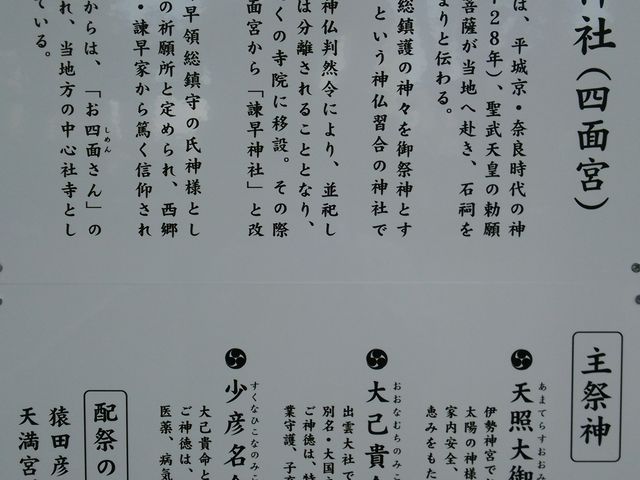 神社（四面宮）
は、平城京・奈良時代の神
２８年）、聖武天皇の勅願
菩薩が当地へ赴き、石祠を
まりと伝わる。
総鎮護の神々を御祭神とす
という神仏習合の神社で
神仏判然令により、並祀し
は分離されることとなり、
くの寺院に移設。その際
面宮から「諫早神社」と改
早領総鎮守の氏神様とし
の祈願所と定められ、西郷
・諫早家から篤く信仰され
からは、「お四面さん」の
しめん
れ、当地方の中心社寺とし
ている。
主祭神
天照大御
あまてらすおおみ
伊勢神宮で
太陽の神様
家内安全、
恵みをもた
大己貴
おおなむちのみこ
出雲大社で
別名・大国
ご神徳は、特
業守護、子
少彦名
すくなひこなのみこ
大己貴命と
ご神徳は、
医薬、病気
配祭の
猿田彦
天満宮